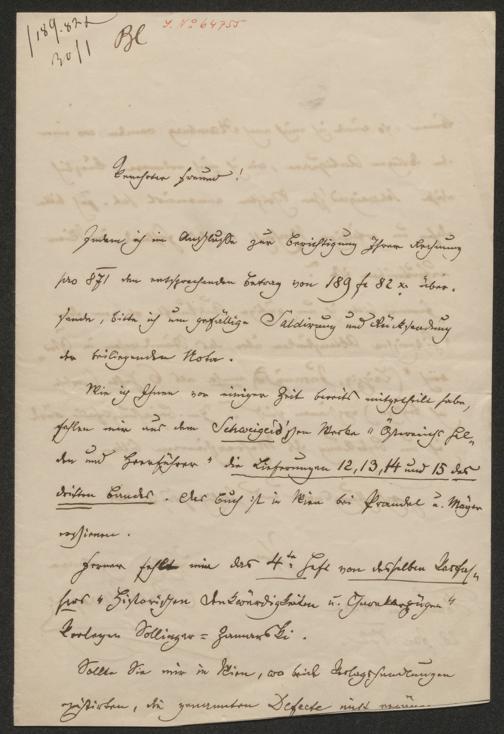 189.82x
30/1
Bl
I. No 64755
Verehrter Freund!
Indem ich im Anschlusse zur Berichtigung Ihrer Rechnung
pro 871 den entsprechenden Betrag von 189 f 82 x. über-
sende, bitte ich um gefällige Saldirung und Rücksendung
der beiliegenden Nota.
Wie ich Ihnen vor einiger Zeit bereits mitgetheilt habe,
fehlen mir aus dem Schweigerd'schen Werke "Österreichs Hel-
den und Heerführer" die Lieferungen 12, 13, 14 und 15 des
dritten Bandes. Das Buch ist in Wien bei Prandel u. Mayer
erschienen.
Ferner fehlt mir das 4te Heft von desselben Verfas-
sers "Historischen Denkwürdigkeiten u. Charakterzügen"
Verlegen Sollinger = Zamarski.
Sollte Sie mir in Wien, wo beide Verlagshandlungen
existirten, die genannten Defecte nicht